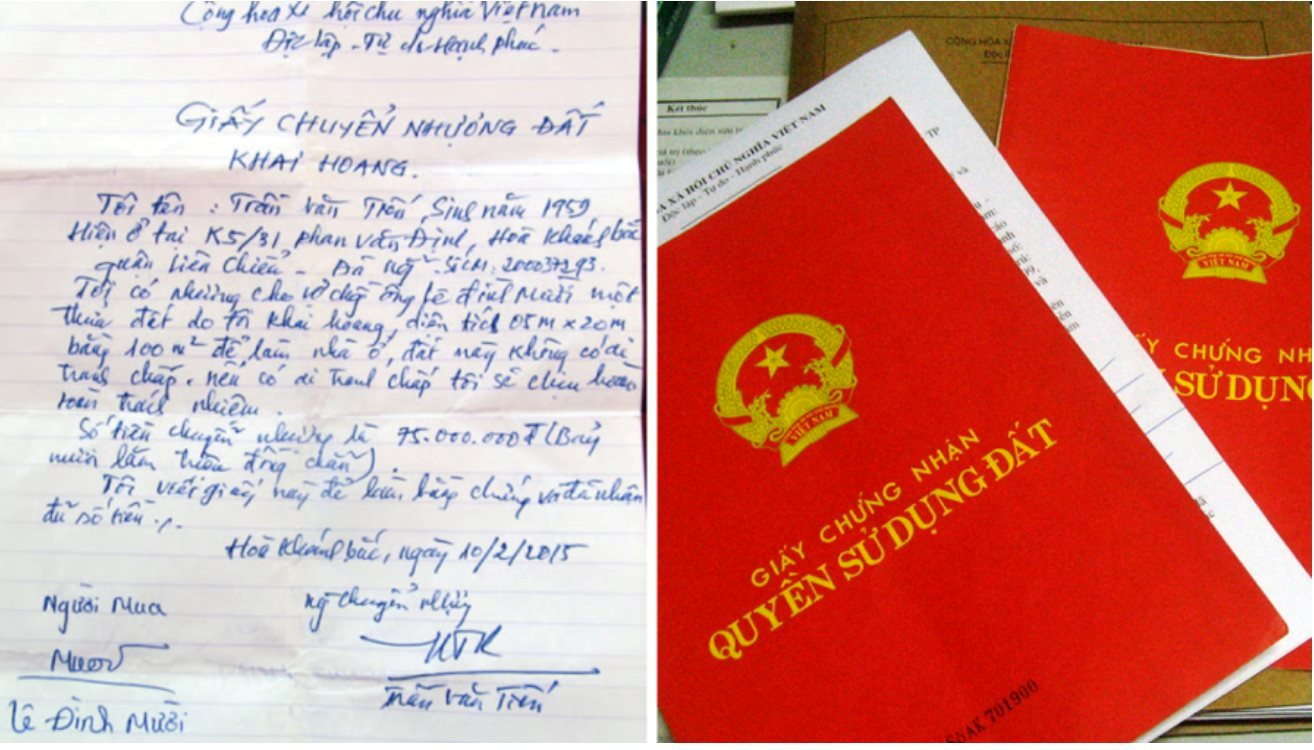 Cộng hoà xã hội chủ nghĩa Việt nam
Độc lập - Tự do Hạnh phúc.
GIẤY CHUYỂN NHƯỢNG ĐẤT
KHAI HOANG.
Tôi tên : Trần văn Tiến, Sinh năm 1959
Hiện ở tại K5/31 phan văn Định, Hoà Khánh bắc
quận Liên Chiểu - Đà nẵng SCM: 200037293.
Tôi có nhường cho vợ chồng ông Lê đình Mười một
thửa đất do tôi khai hoang, diện tích 05m x 20m
bằng 100m² để làm nhà ở, đất này không có ai
tranh chấp. nếu có ai tranh chấp tôi sẽ chịu hoàn
toàn trách nhiệm.
Số tiền chuyển nhường là 75.000.000đ (Bảy
mươi lăm triệu đồng chẵn).
Tôi viết giấy này để làm bằng chứng và đã nhận
đủ số tiền
Hoà Khánh bắc, ngày 10/2/2015
Người Mua
ng chuyển nhượng
Mười
Lê Đình Mười
Trần văn Tiến
CỘNG HÒA X
Độc
Kết thúc
A XÃ HỘI CHỦ NGHĨA VIỆT NAM
Độc lập - Tự do - Hạnh phúc
TP
VIỆT NAM
GIẤY CHỨNG NHẬN
QUYỀN SỬ DỤNG ĐẤT
Số AK 701900
VIỆT NAM
Y CHỨNG NH
SỬ DỤNG